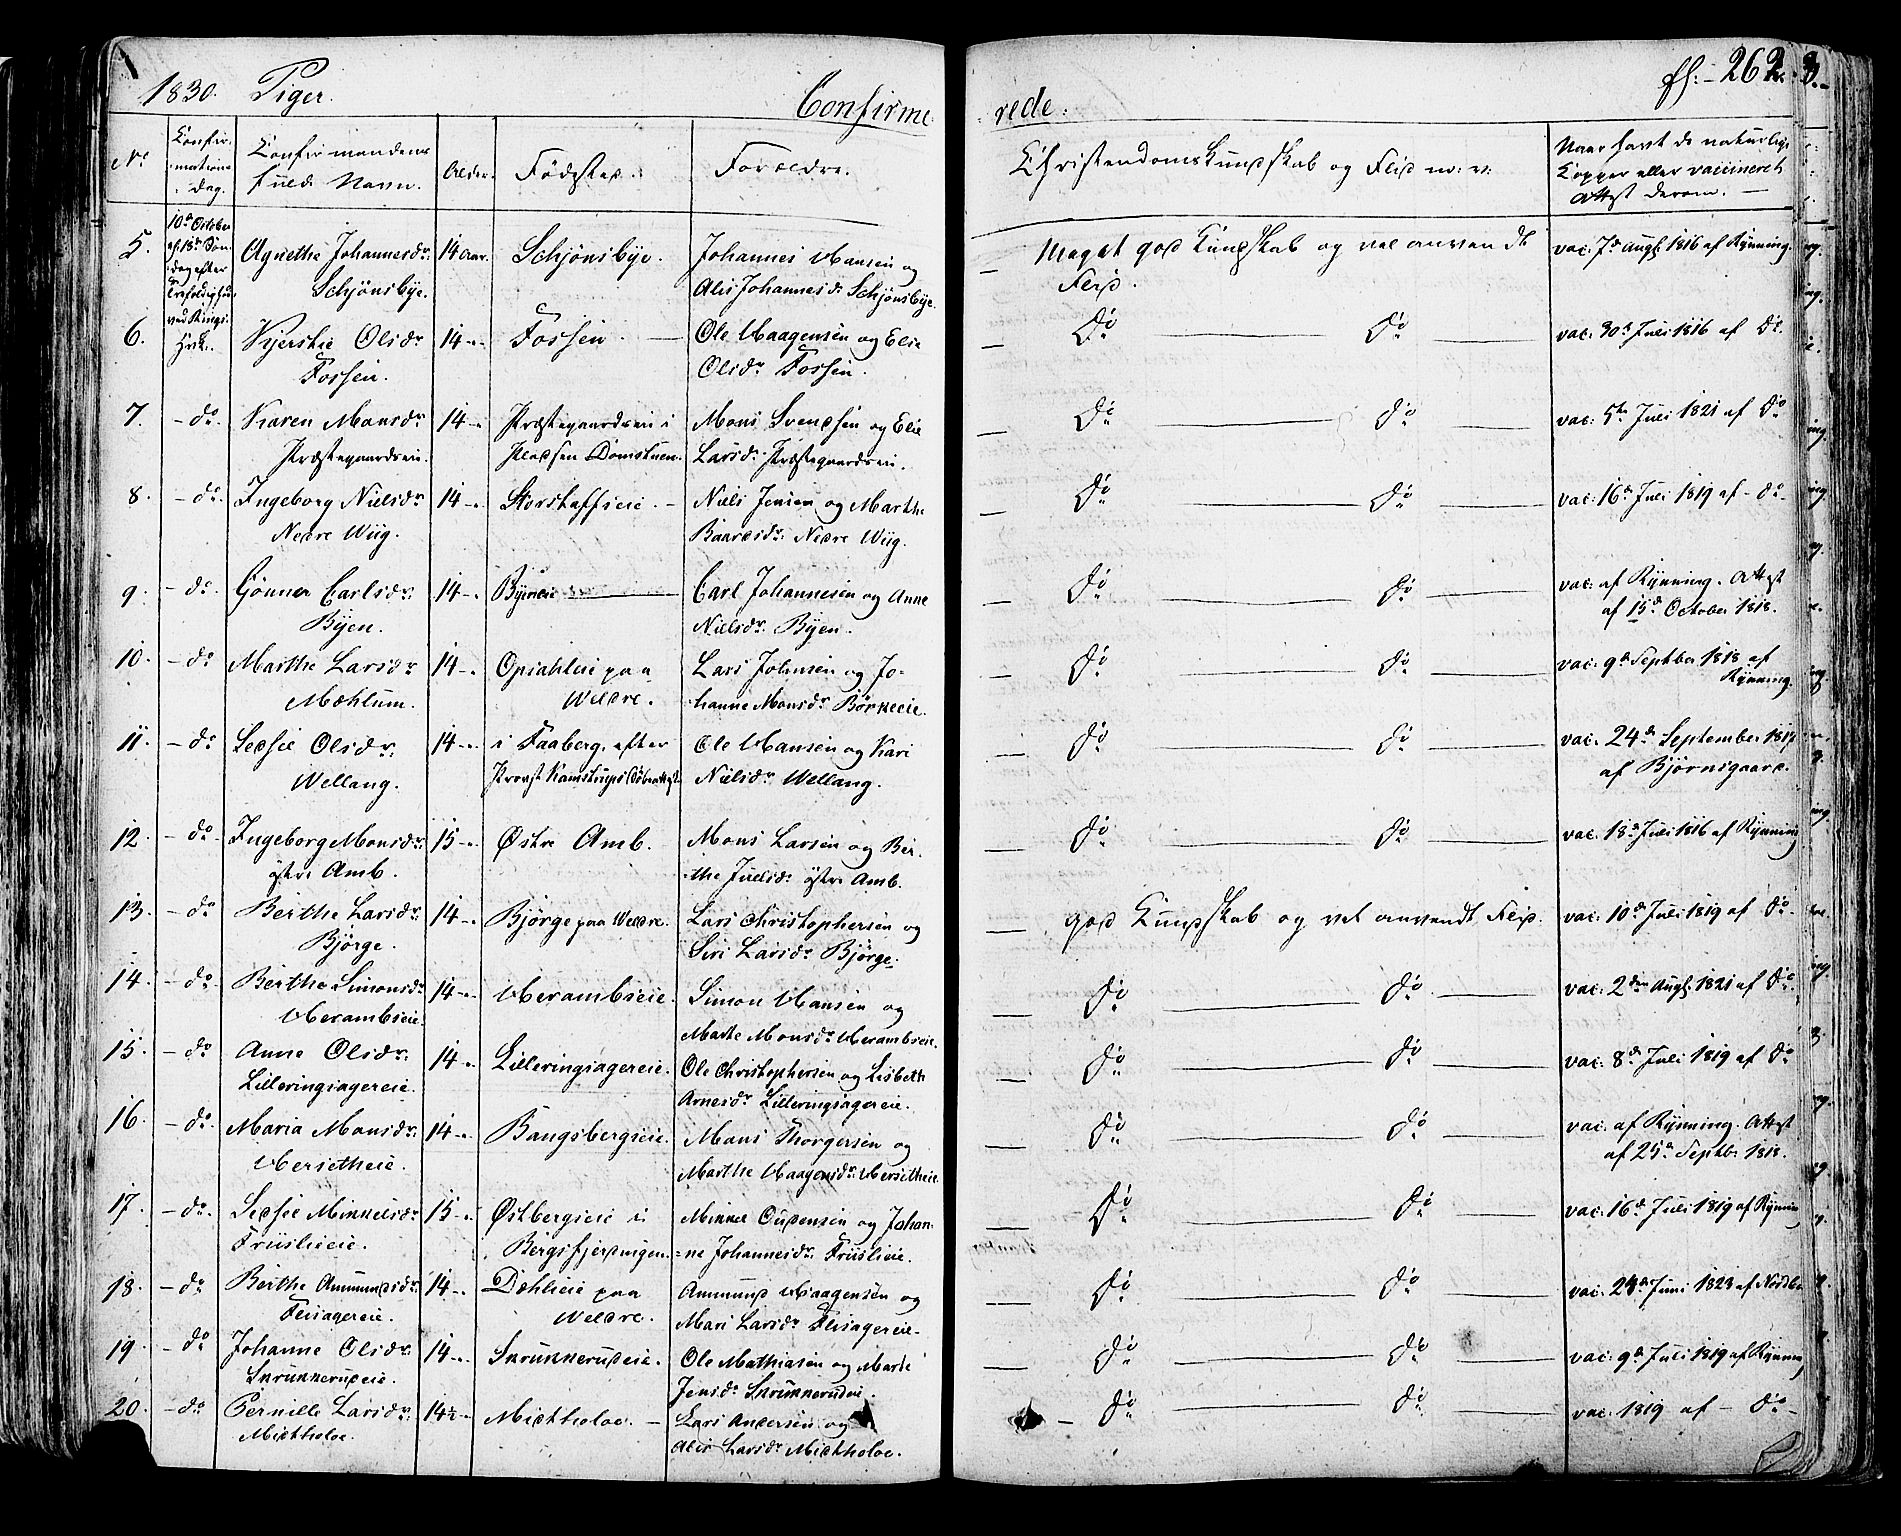 1830. Piger.
Confirme
rede.
262.
No
Confir-
mations
dag.
Confirmandens
fulde Navn.
Alder.
Fødested.
Forældre.
Christendomskundskab og Flid m: v:
Naar havt de naturlige
Kopper eller vaccineret
Attest derom. —
5.
10de October
18de Søn-
dag efter
Trefoldighed
ved Rings.
Agnethe Johannesdr.
Schjønsbye.
14 Aar.
Schjønsbye.
Johannes Hansen og
Alis Johannesdr. Schjønsbye.
Meget god Kundskab og vel anvendt
Flid.
vac. 7de Augt. 1816 af Rynning.
6.
Kjerstie Olsdr.
Fossen.
14 —
Fossen. —
Ole Haagensen og Elie
Olsdr. Fossen.
Do — Do —
vac: 30te Juli 1816 af Do.
7.
— do.
Karen Monsdr.
Præstegaardseie.
14 —
Præstegaardseie i
Pladsen Domstuen.
Mons Svendsen og Elie
Larsdr. Præstegaardseie.
Do — Do —
vac: 5te Juli 1821 af Do
8.
— do.
Ingeborg Nielsdr.
Nedre Wiig.
14 —
Storstaffseie. —
Niels Jensen og Marthe
Baardsdr. Nedre Wiig.
Do — Do —
vac: 16de Juli 1819 af — Do —
9.
— do.
Gønner Carlsdr.
Byen.
14 —
Byeneie —
Carl Johannesen og Anne
Nielsdr. Byen.
Do — Do —
vac: af Rynning. Attest
af 15de October 1818.
10.
— do
Marthe Larsdr.
Mæhlum.
14 —
Opsahleie paa
Weldre.
Lars Johnsen og Jo-
hanne Monsdr. Børkeeie.
Do — Do —
vac: 9de Septber 1818 af
Rynning.
11.
— do
Sedsie Olsdr.
Wellang.
14 —
i Faaberg, efter
Provst Kamstrups Døbeattest
Ole Hansen og Kari
Nielsdr. Wellang.
Do — Do —
vac. 24de September
af Bjørnsgaard.
12.
— do.
Ingeborg Monsdr.
østre Amb.
15 —
Østre Amb.
Mons Larsen og Ber-
the Juelsdr. østre Amb.
Do — Do —
vac: 18de Juli 1816 af Rynning
13.
— do
Berthe Larsdr.
Bjørge.
14 —
Bjørge paa Weldre.
Lars Christophersen og
Siri Larsdr. Bjørge.
god Kundskab og vel anvendt Flid.
vac: 10de Juli 1819 af Do
14.
— do.
Berthe Simonsdr.
Herambseie.
14 —
Herambseie.
Simon Hansen og
Marte Monsdr. Herambseie.
Do — Do —
vac. 2den Augt. 1821 af Do.
15.
— do
Anne Olsdr.
Lilleringsagereie.
14 —
Lilleringsagereie.
Ole Christophersen og Lisbeth
Arnesdr. Lilleringsagereie.
Do — Do —
vac: 8de Juli 1819 af Do
16.
— do.
Maria Monsdr.
Hersetheie.
14 —
Bangsbergseie.
Mons Thorgersen og
Marthe Haagensdr. Hersetheie
Do — Do —
vac. af Rynning. Attest
af 25de Septbr. 1818.
17.
— do.
Sedsie Minkelsdr.
Friislieie.
15 —
Østbergseie i
Bergsfjerdingen.
Minkel Gudensen og Johan-
=ne Johannesdr. Friislieie.
Do — Do —
vac: 16de Juli 1819 af Rynning
18.
— do
Berthe Ammundsdr.
Flisagereie.
14 —
Dæhlieie paa
Weldre.
Ammund Haagensen og
Mari Larsdr. Flisagereie —
Do — Do
vac: 24de Juni 1823 af
19.
— do
Johanne Olsdr.
Skrukkerudeie.
14 —
Skrukkerudeie.
Ole Mathiasen og Marte
Jensdr. Skrukkerudeie.
Do — Do —
vac: 9de Juli 1819 af Rynning
20.
— do
Pernille Larsdr.
Midtholoe.
14½ —
Midtholoe. —
Lars Andersen og
Alis Larsdr. Midtholoe.
— Do — Do. —
vac: 1819 af — Do —